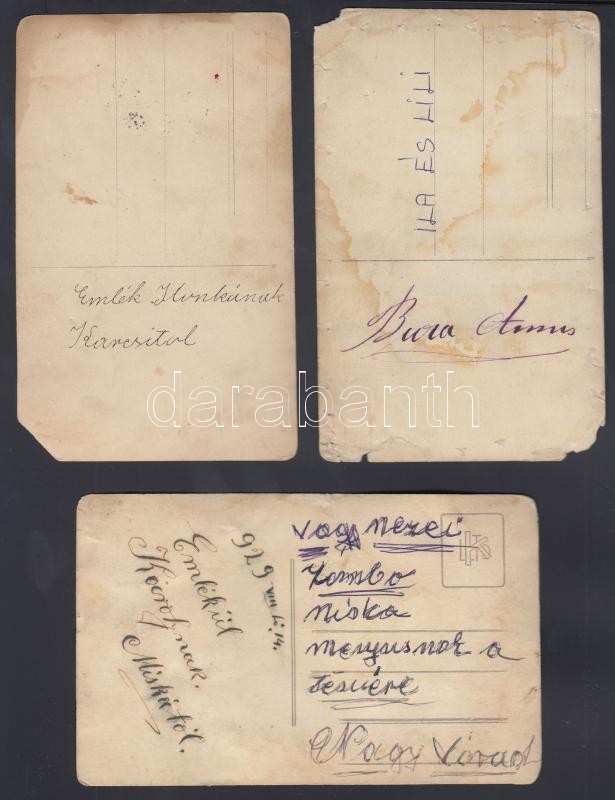 Emlék Ilonkának
Karcsitol
ILA ÉS LILI
Bura Annus
darabanth
929 VIII. 14.
Emlékül
Károlynak.
Miskától.
Vagy nezei
Zambo
miska
menyusnak a
tesvére
Nagy Várad